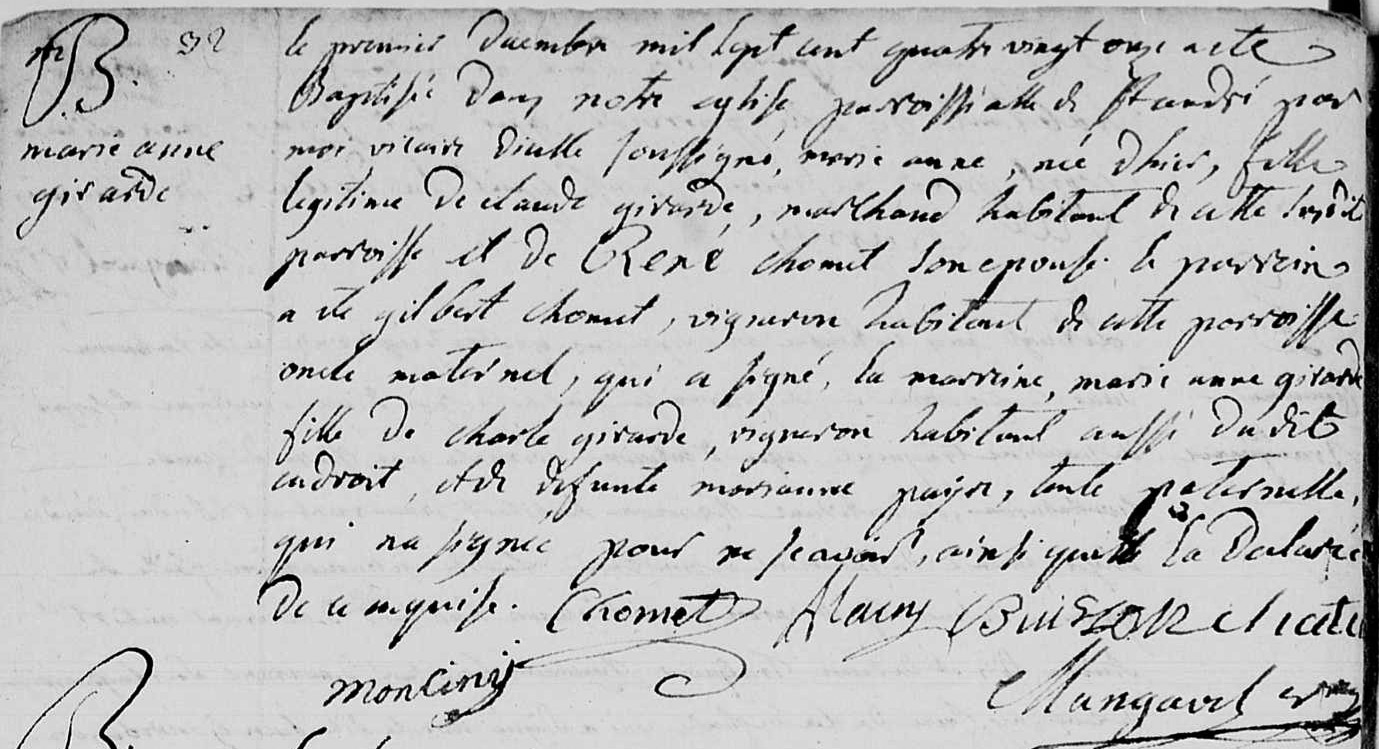 B. 32
marie anne
girarde
le premier decembre mil sept cent quatre vingt onze a ete
Baptisée dans notre eglise parroissialle de St andré par
moi vicaire dicelle soussigné, marie anne, née dhier, fille
legitime de claude girarde, marchand habitant de cette susdit
parroisse et de René chomet son epouse. le parrein
a ete gilbert chomet, vigneron habitant de cette parroisse
oncle maternel, qui a signé, la marreine, marie anne girarde
fille de charle girarde, vigneron habitant aussi dudit
endroit, et de defunte marianne payre, tente paternelle,
qui na signée pour ne scavoir, ainsi quelle la declaré
de ce enquise. Chomet BUISSON
monciny
Mangavel
B.